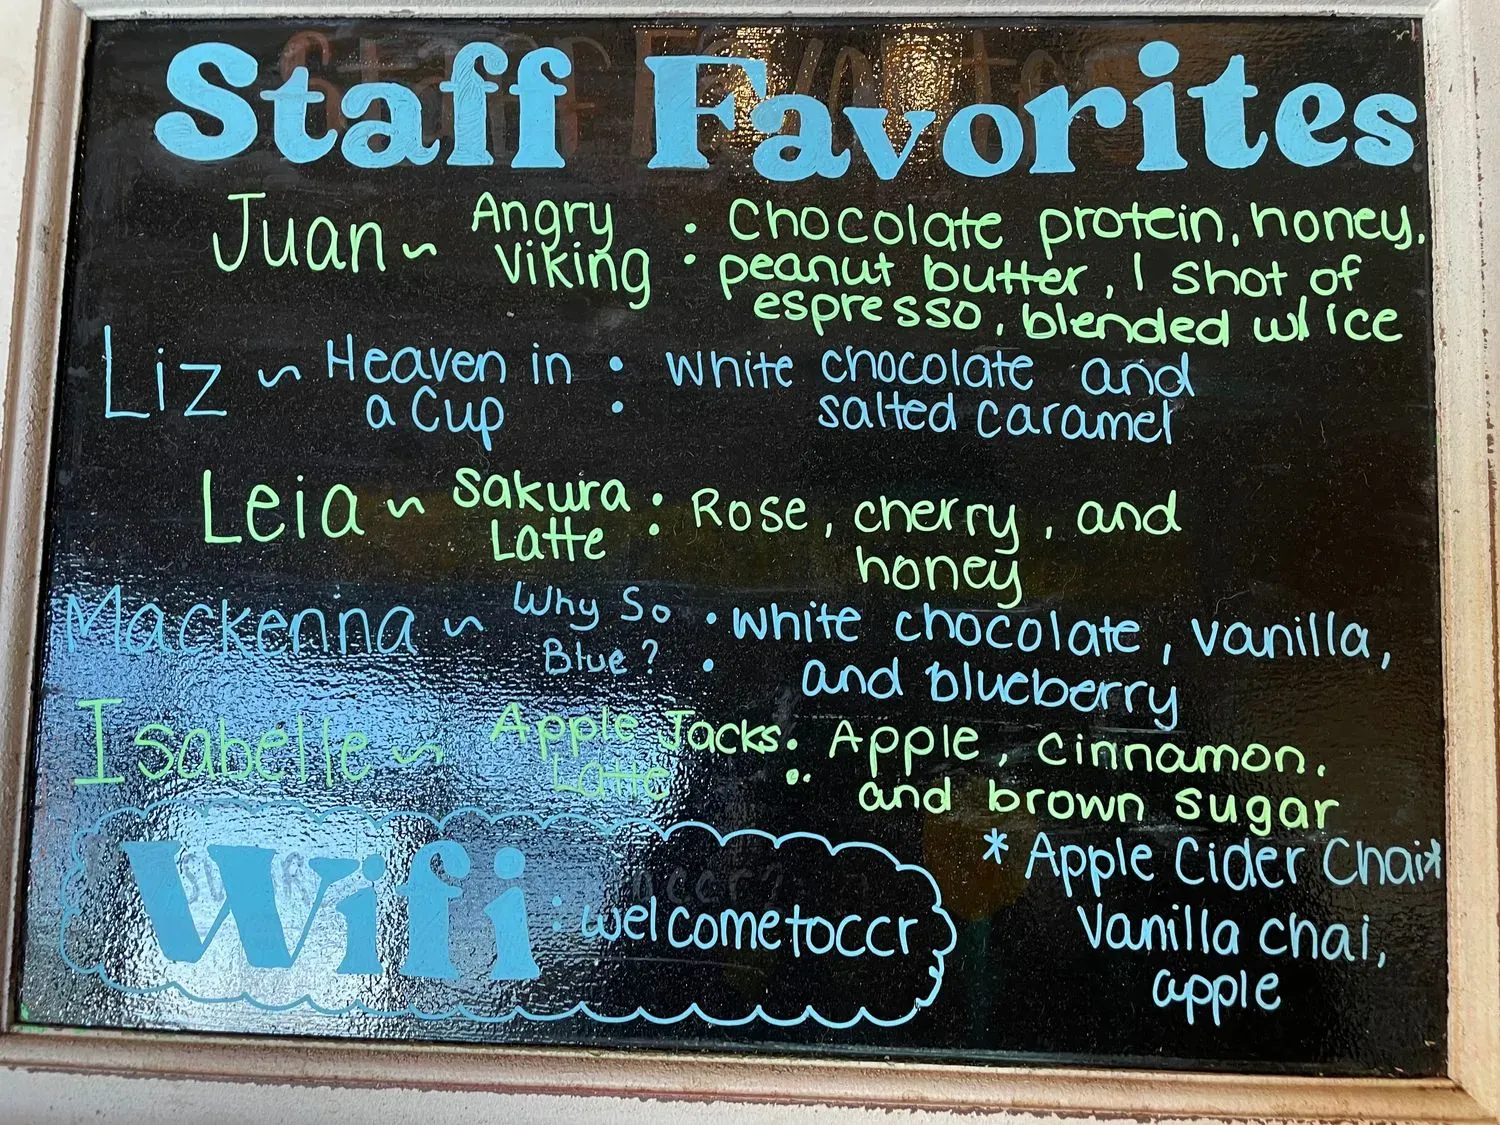 Staff Favorites
Juan ~ Angry Viking : Chocolate protein, honey,
peanut butter, 1 shot of
espresso, blended w/ ice
Liz ~ Heaven in a Cup : White chocolate and
salted caramel
Leia ~ Sakura Latte : Rose, cherry, and
honey
Mackenna ~ Why So Blue? : White chocolate, vanilla,
and blueberry
Isabelle ~ Apple Jacks Latte : Apple, cinnamon,
and brown sugar
*Apple Cider Chai*
Vanilla chai,
apple
Wifi : welcometoccr